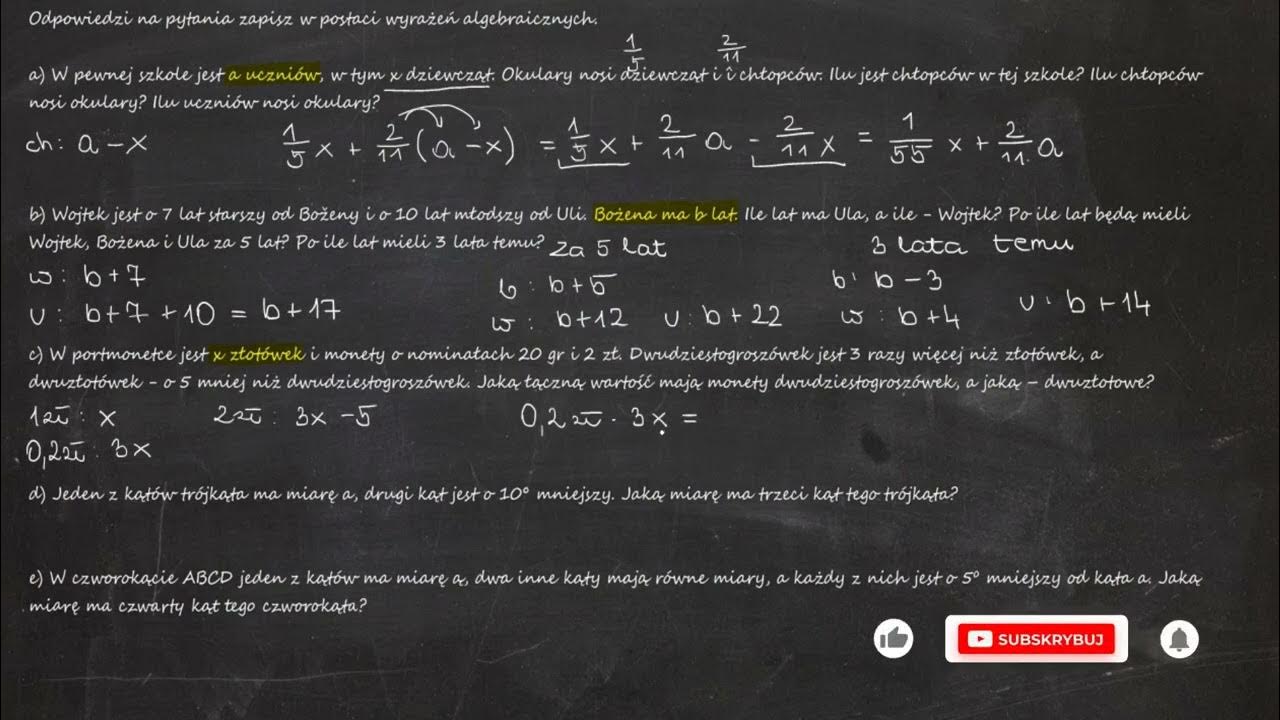 Odpowiedzi na pytania zapisz w postaci wyrażeń algebraicznych.
1/5 2/11
a) W pewnej szkole jest a uczniów, w tym x dziewcząt. Okulary nosi dziewcząt i i chłopców. Ilu jest chłopców w tej szkole? Ilu chłopców
nosi okulary? Ilu uczniów nosi okulary?
ch: a-x 1/5 x + 2/11 (a-x) = 1/5 x + 2/11 a - 2/11 x = 1/55 x + 2/11 a
b) Wojtek jest o 7 lat starszy od Bożeny i o 10 lat młodszy od Uli. Bożena ma b lat. Ile lat ma Ula, a ile - Wojtek? Po ile lat będą mieli
Wojtek, Bożena i Ula za 5 lat? Po ile lat mieli 3 lata temu? Za 5 lat 3 lata temu
w: b+7 b: b+5 b: b-3
u: b+7+10 = b+17 w: b+12 u: b+22 w: b+4 u: b+14
c) W portmonetce jest x złotówek i monety o nominałach 20 gr i 2 zł. Dwudziestogroszówek jest 3 razy więcej niż złotówek, a
dwuzłotówek - o 5 mniej niż dwudziestogroszówek. Jaką łączną wartość mają monety dwudziestogroszówek, a jaką – dwuzłotowe?
1zł: x 2zł: 3x-5 0,2zł · 3x =
0,2zł: 3x
d) Jeden z kątów trójkąta ma miarę a, drugi kąt jest o 10° mniejszy. Jaką miarę ma trzeci kąt tego trójkąta?
e) W czworokącie ABCD jeden z kątów ma miarę ą, dwa inne kąty mają równe miary, a każdy z nich jest o 5° mniejszy od kąta a. Jaką
miarę ma czwarty kąt tego czworokąta?
SUBSKRYBUJ